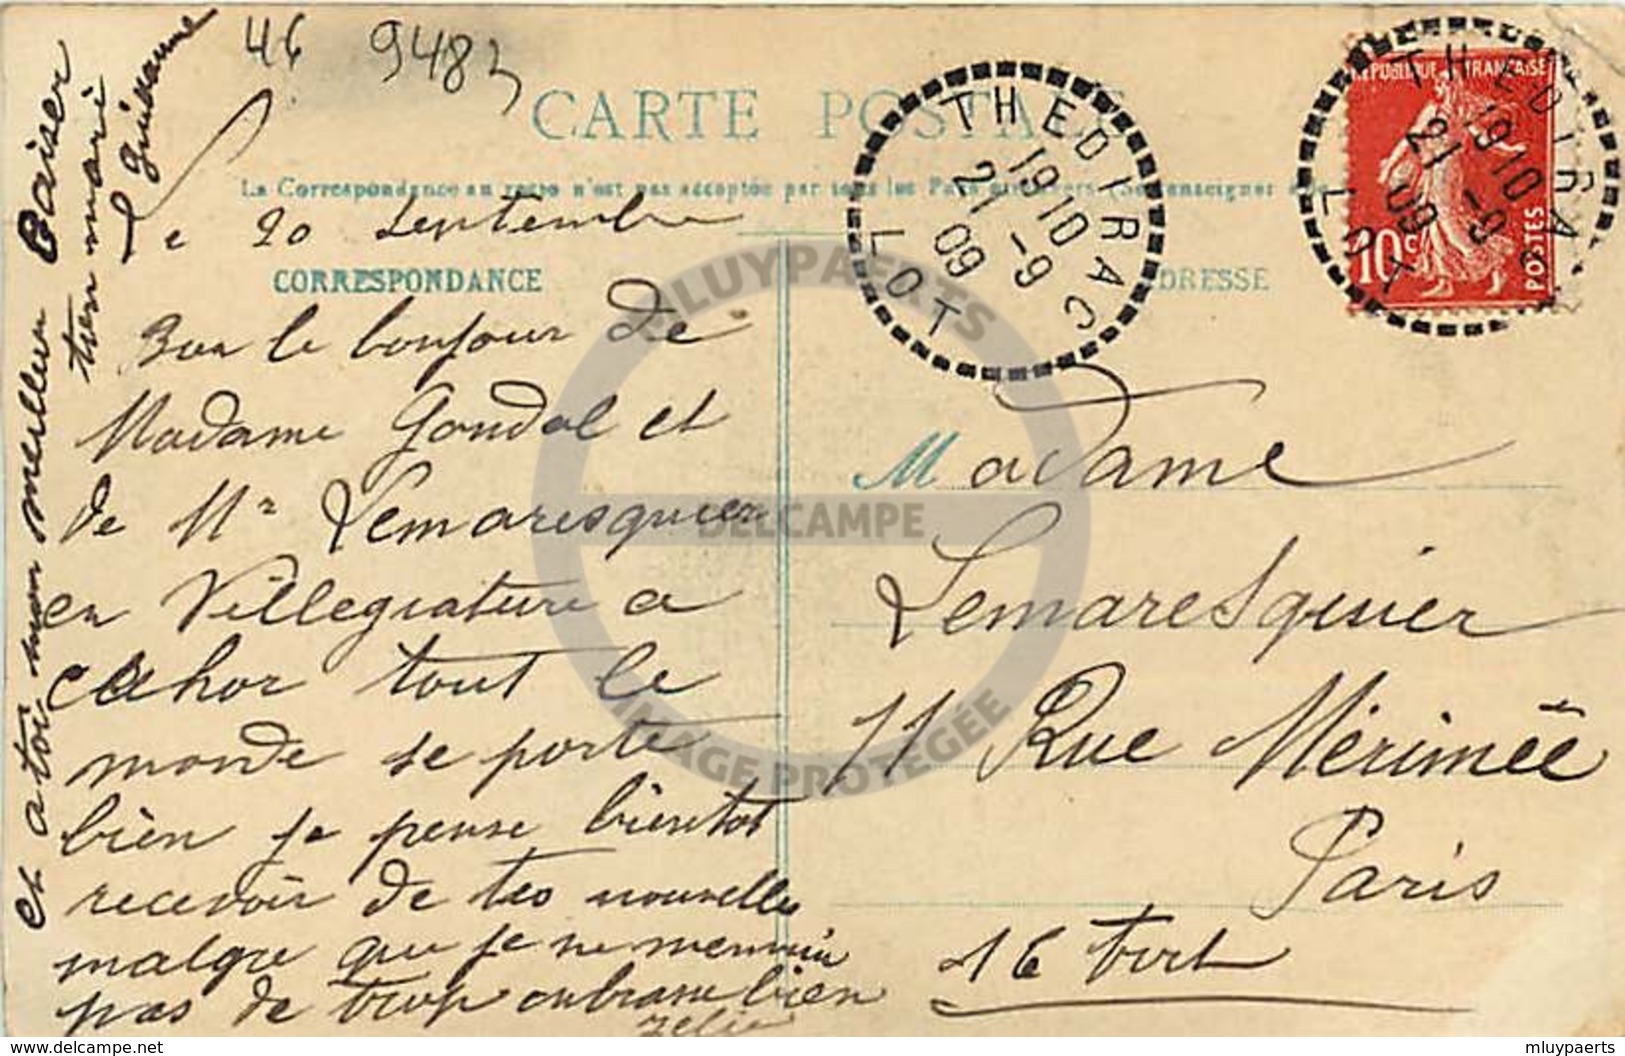 46 9483
CARTE POSTALE
La Correspondance au recto n'est pas acceptée par tous les Pays
Le 20 Septembre
CORRESPONDANCE
ADRESSE
Bon le bonjour de
Madame Gondal et
de Mr Lemaresquier
en Villegiature a
cahor tout le
monde se porte
bien je pense bientot
recevoir de tes nouvelles
malgre que je ne mennui
pas de trop embrasse bien
Zelie
et a toi mon meilleur Baiser
ton mari
Madame
Lemaresquier
11 Rue Mérimée
Paris
16
THEDIRAC
1910
21 -9
09
LOT
THEDIRAC
1910
21 -9
09
LOT
REPUBLIQUE FRANÇAISE
10c
POSTES
MLUYPAERTS
DELCAMPE
IMAGE PROTÉGÉE
www.delcampe.net
mluypaerts